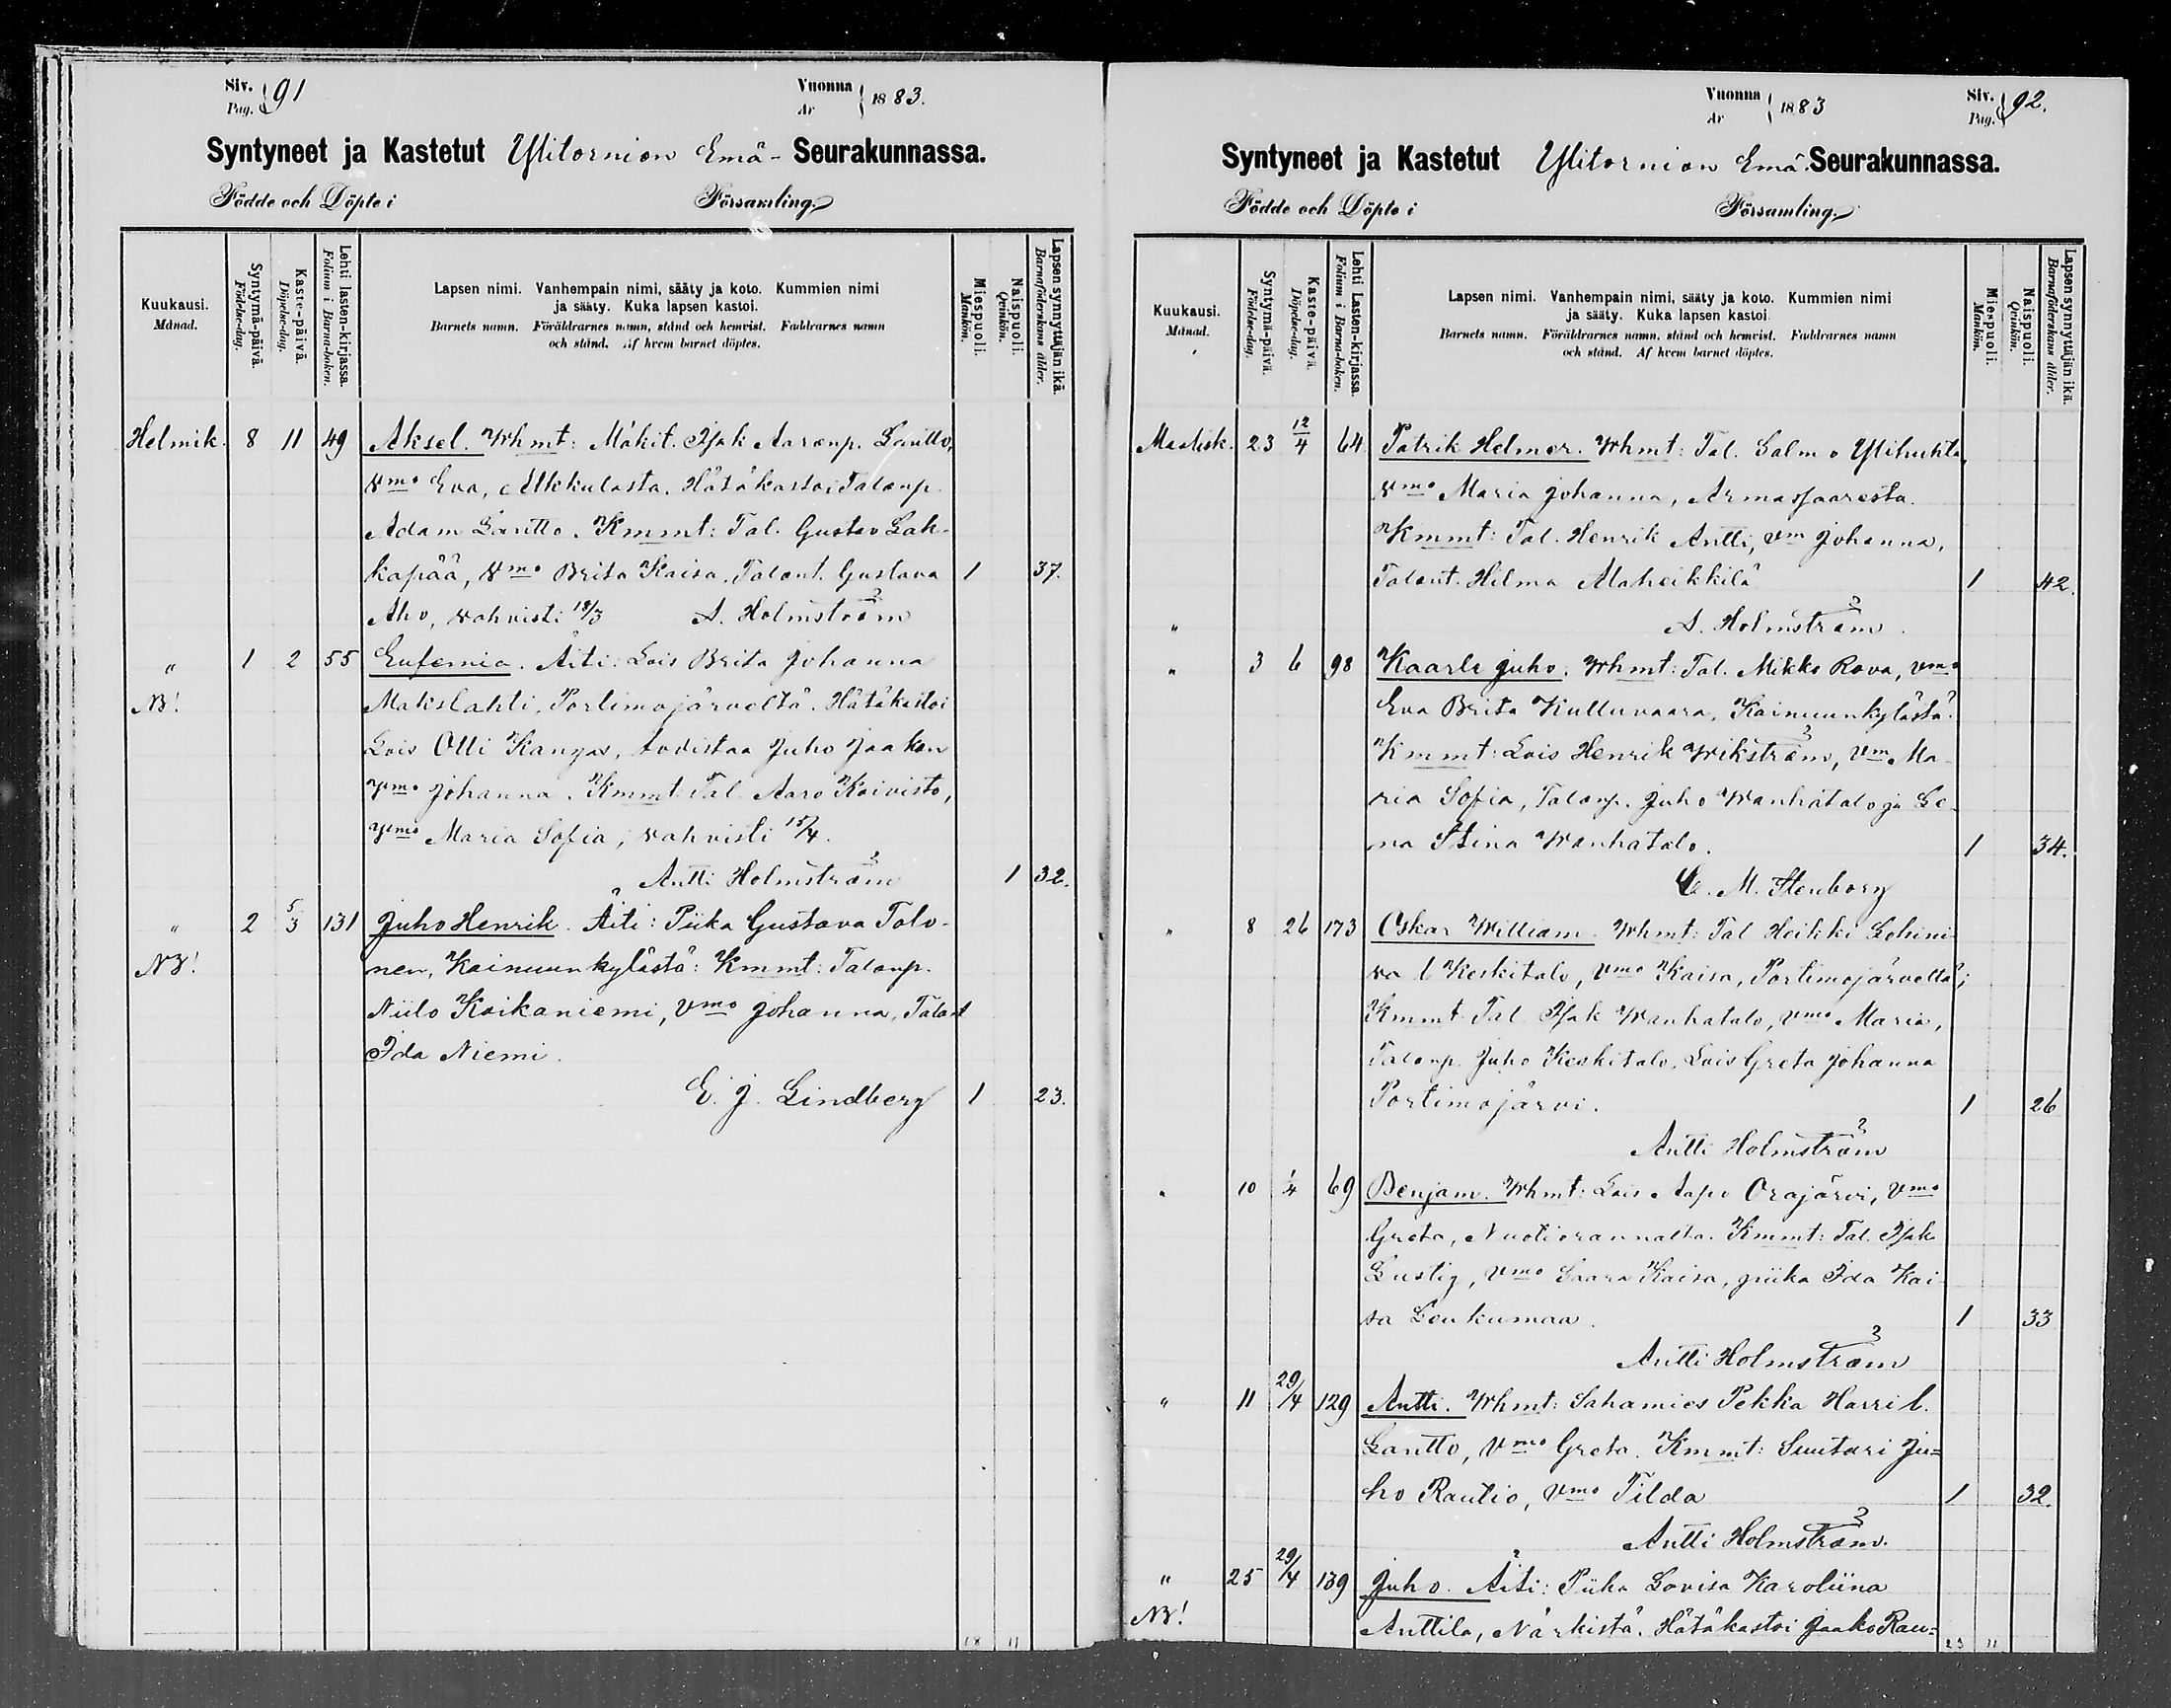 Siv. 91 Vuonna 1883.
Pag. År
Syntyneet ja Kastetut Ylitornion Emä- Seurakunnassa.
Födde och Döpte i Församling.
Kuukausi. Månad.
Syntymä-päivä. Födelse-dag.
Kaste-päivä. Döpelse-dag.
Lehti lasten-kirjassa. Folium i Barna-boken.
Lapsen nimi. Vanhempain nimi, sääty ja koto. Kummien nimi
ja sääty. Kuka lapsen kastoi.
Barnets namn. Föräldrarnes namn, stånd och hemvist. Faddrarnes namn
och stånd. Af hvem barnet döptes.
Miespuoli. Mankön.
Naispuoli. Qvinkön.
Lapsen synnyttäjän ikä. Barnaföderskans ålder.
Helmik. 8 11 49 Aksel. Whmt: Mäkit. Isak Aaronp. Lantto,
vmo Eva, Alkkulasta. Hätäkastoi Talonp.
Adam Lantto. Kmmt: Tal. Gustav Lak-
kapää, vmo Brita Kaisa, Talont. Gustava 1 37.
Aho, vahvisti 18/3 A. Holmström
" 1 2 55 Eufemia. Äiti: Lois Brita Johanna
NB! Makslahti, Portimojärveltä. Hätäkastoi
Lois Olli Kangas, todistaa Juho Jaakon
vmo Johanna. Kmmt Tal. Aaro Koivisto,
vmo Maria Sofia, vahvisti 15/4.
Antti Holmström 1 32.
" 2 5/3 131 Juho Henrik. Äiti: Piika Gustava Tolo-
NB! nen, Kainuunkylästä: Kmmt: Talonp.
Niilo Koikaniemi, Vmo Johanna, Talont
Ida Niemi.
E. J. Lindberg 1 23.
18 11
Vuonna 1883 Siv. 92.
År Pag.
Syntyneet ja Kastetut Ylitornion Emä Seurakunnassa.
Födde och Döpte i Församling.
Kuukausi. Månad.
Syntymä-päivä. Födelse-dag.
Kaste-päivä. Döpelse-dag.
Lehti Lasten-kirjassa. Folium i Barna-boken.
Lapsen nimi. Vanhempain nimi, sääty ja koto. Kummien nimi
ja sääty. Kuka lapsen kastoi.
Barnets namn. Föräldrarnes namn, stånd och hemvist. Faddrarnes namn
och stånd. Af hvem barnet döptes.
Miespuoli. Mankön.
Naispuoli. Qvinkön.
Lapsen synnyttäjän ikä. Barnaföderskans ålder.
Maalisk. 23 12/4 64 Patrik Helmer. Whmt: Tal. Salmo Ylihuhta,
vmo Maria Johanna, Armassaaresta.
Kmmt: Tal. Henrik Antti, vm Johanna,
Talont. Hilma Alaheikkilä 1 42.
" A. Holmström.
" 3 6 98 Kaarle Juho. Whmt: Tal. Mikko Rova, vmo
Eva Brita Kulluvaara, Kainuunkylästä.
Kmmt: Lois Henrik Wikström, Vm Ma-
ria Sofia, Talonp. Juho Wanhatalo ja Le-
na Stina Wanhatalo. 1 34.
C. M. Stenborg
" 8 26 173 Oskar William. Whmt: Tal Heikki Lohini-
va l. Keskitalo, Vmo Kaisa, Portimojärveltä;
Kmmt Tal Isak Wanhatalo, vmo Maria,
Talonp. Juho Keskitalo, Lois Greta Johanna
Portimojärvi. 1 26
Antti Holmström
" 10 1/4 69 Benjam. Whmt: Lois Aapo Orajärvi, Vmo
Greta, Nuotiorannalta. Kmmt: Tal. Isak
Lustig, Vmo Saara Kaisa, piika Ida Kai
sa Leukumaa. 1 33
Antti Holmström
" 11 29/4 129 Antti. Whmt: Sahamies Pekka Harri l.
Lantto, Vmo Greta. Kmmt: Suutari Ju=
ho Rautio, Vmo Tilda 1 32.
Antti Holmström.
" 25 29/4 139 Juho. Äiti: Piika Lovisa Karoliina
NB! Anttila, Närkistä. Hätäkastoi Jaako Rau=
23 11